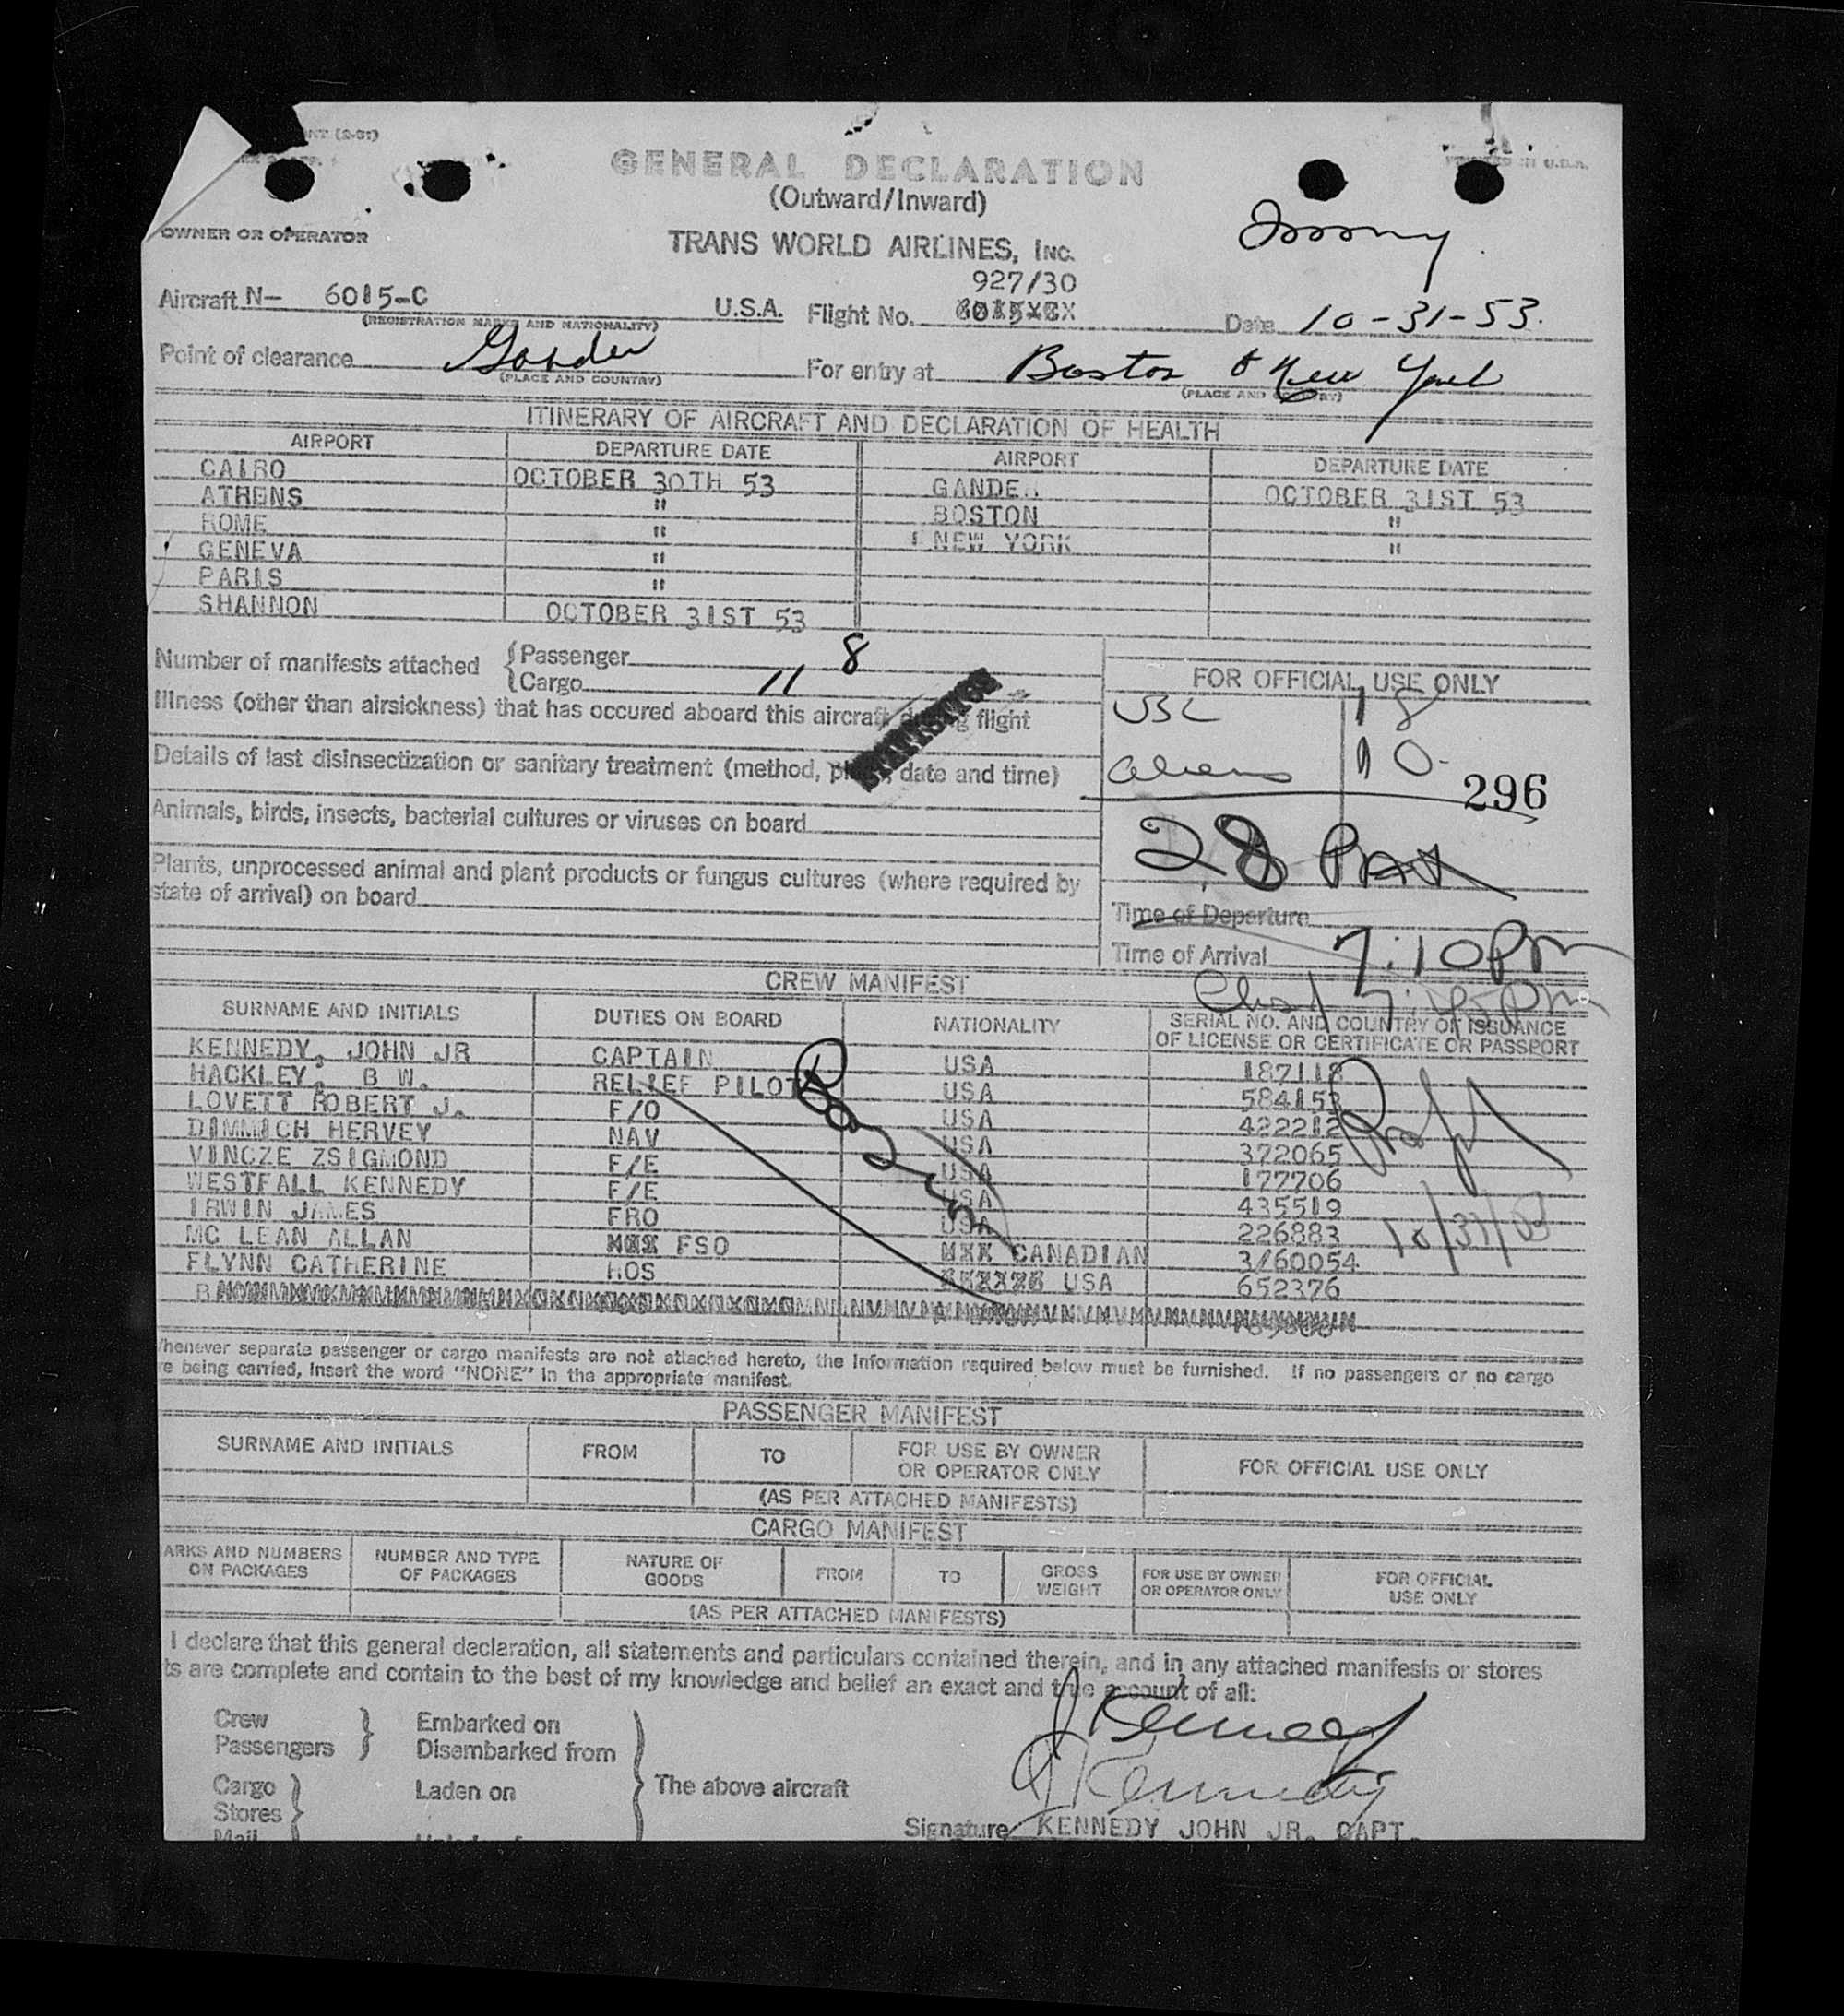 GENERAL DECLARATION
(Outward/Inward)
OWNER OR OPERATOR
TRANS WORLD AIRLINES, INC.
927/30
Aircraft N- 6015-C U.S.A. Flight No. Date 10-31-53.
(REGISTRATION MARKS AND NATIONALITY)
Point of clearance Gander For entry at Boston & New York
(PLACE AND COUNTRY) (PLACE AND COUNTRY)
ITINERARY OF AIRCRAFT AND DECLARATION OF HEALTH
AIRPORT DEPARTURE DATE AIRPORT DEPARTURE DATE
CAIRO OCTOBER 30TH 53 GANDE OCTOBER 31ST 53
ATHENS " BOSTON "
ROME " NEW YORK "
GENEVA "
PARIS "
SHANNON OCTOBER 31ST 53
Number of manifests attached { Passenger 8
{ Cargo 11
FOR OFFICIAL USE ONLY
Illness (other than airsickness) that has occured aboard this aircraft during flight
USC 18
Details of last disinsectization or sanitary treatment (method, place, date and time)
aliens 10
296
Animals, birds, insects, bacterial cultures or viruses on board
28 Pax
Plants, unprocessed animal and plant products or fungus cultures (where required by
state of arrival) on board
Time of Departure
Time of Arrival 7:10 Pm
CREW MANIFEST
SURNAME AND INITIALS DUTIES ON BOARD NATIONALITY SERIAL NO. AND COUNTRY OF ISSUANCE
OF LICENSE OR CERTIFICATE OR PASSPORT
KENNEDY, JOHN JR CAPTAIN USA 187118
HACKLEY, B W. RELIEF PILOT USA 584153
LOVETT ROBERT J. F/O USA 422212
DIMMICH HERVEY NAV USA 372065
VINCZE ZSIGMOND F/E USA 177706
WESTFALL KENNEDY F/E USA 435519
IRWIN JAMES FRO USA 226883
10/31/53
MC LEAN ALLAN FSO CANADIAN 3/60054
FLYNN CATHERINE HOS USA 652376
henever separate passenger or cargo manifests are not attached hereto, the information required below must be furnished. If no passengers or no cargo
e being carried, insert the word "NONE" in the appropriate manifest.
PASSENGER MANIFEST
SURNAME AND INITIALS FROM TO FOR USE BY OWNER OR OPERATOR ONLY FOR OFFICIAL USE ONLY
(AS PER ATTACHED MANIFESTS)
CARGO MANIFEST
ARKS AND NUMBERS ON PACKAGES NUMBER AND TYPE OF PACKAGES NATURE OF GOODS FROM TO GROSS WEIGHT FOR USE BY OWNER OR OPERATOR ONLY FOR OFFICIAL USE ONLY
(AS PER ATTACHED MANIFESTS)
I declare that this general declaration, all statements and particulars contained therein, and in any attached manifests or stores
ts are complete and contain to the best of my knowledge and belief an exact and true account of all:
Crew Embarked on
Passengers Disembarked from
J Kennedy
J Kennedy
Cargo Laden on The above aircraft
Stores
Mail
Signature KENNEDY JOHN JR. CAPT.